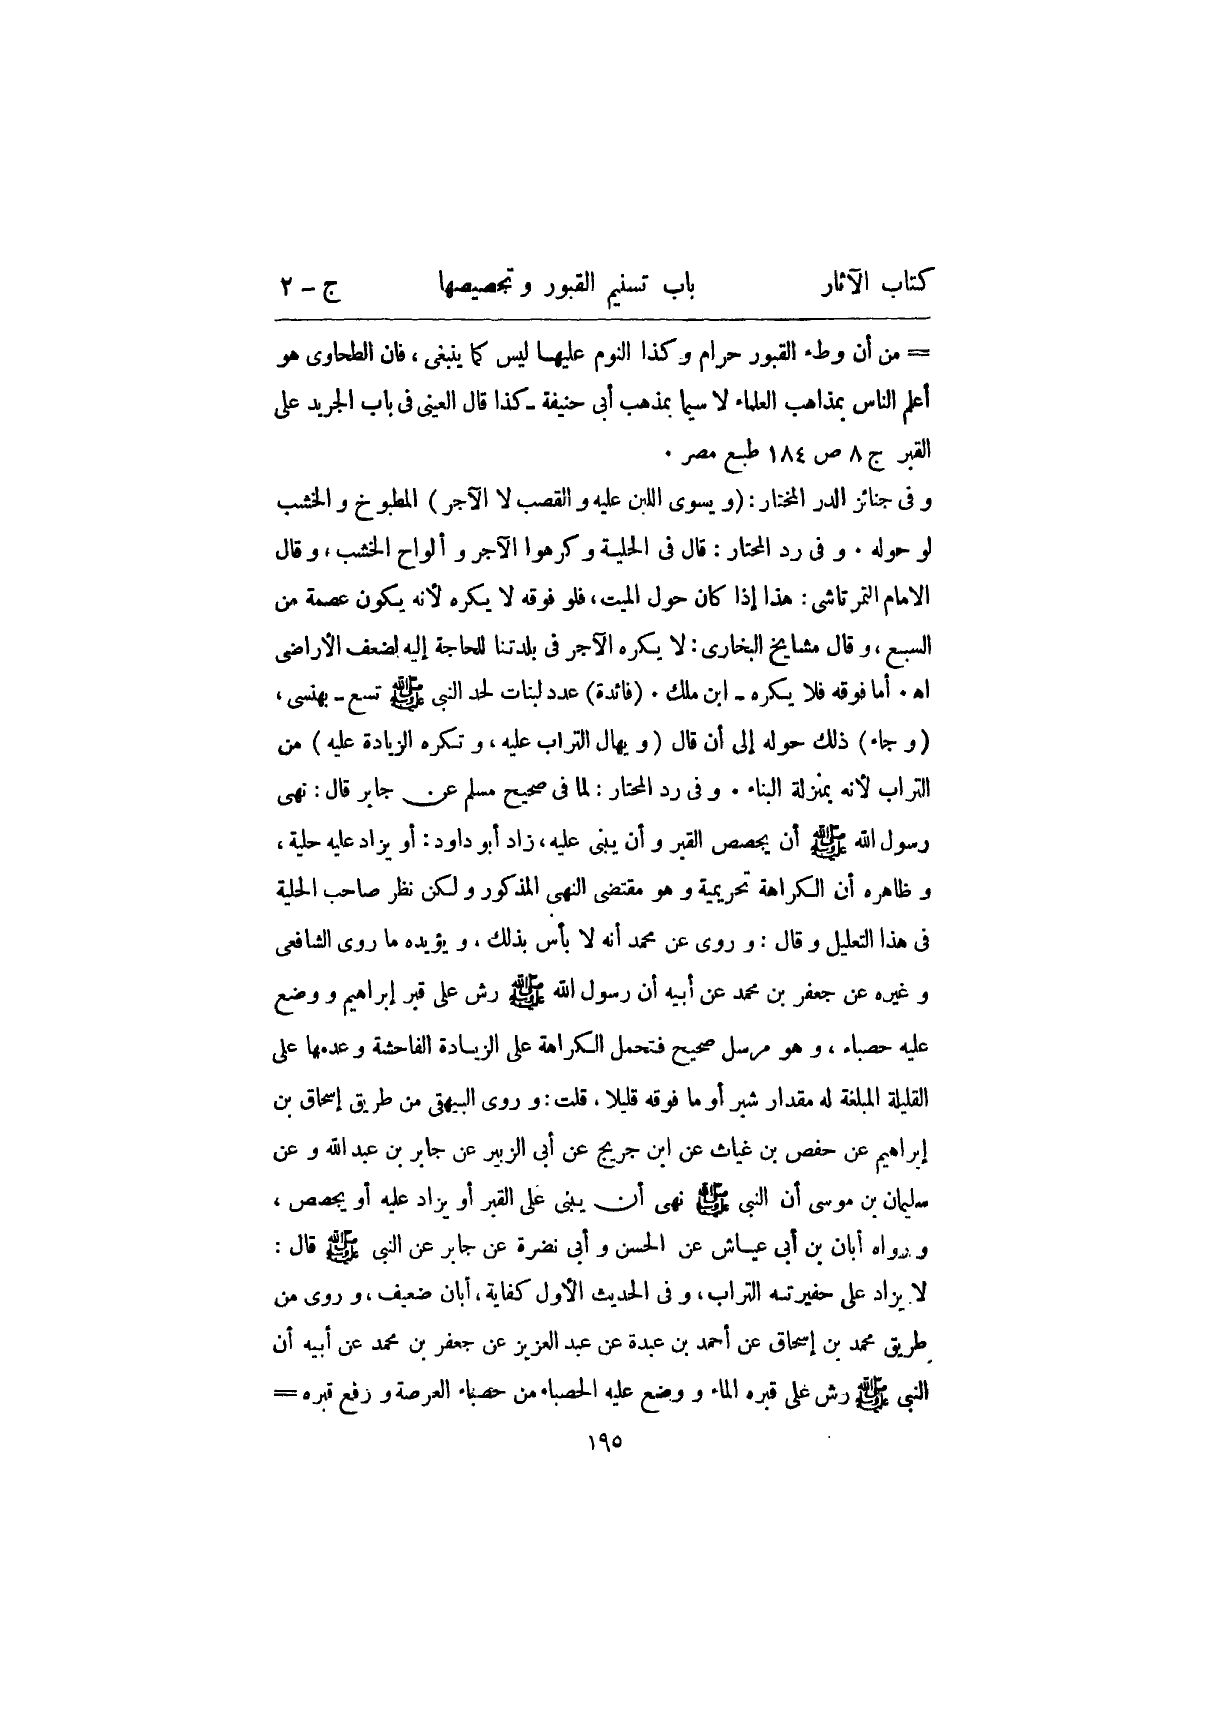 كتاب الآثار باب تسنيم القبور و تجصيصها ج - ٢
= من أن وطء القبور حرام و كذا النوم عليها ليس كما ينبغى ، فان الطحاوى هو
أعلم الناس بمذاهب العلماء لا سيما بمذهب أبى حنيفة - كذا قال العينى فى باب الجريد على
القبر ج ٨ ص ١٨٤ طبع مصر .
و فى جنائز الدر المختار : (و يسوى اللبن عليه و القصب لا الآجر ) المطبوخ و الخشب
لو حوله . و فى رد المحتار : قال فى الحلية و كرهوا الآجر و ألواح الخشب ، و قال
الامام التمرتاشى : هذا إذا كان حول الميت ، فلو فوقه لا يكره لأنه يكون عصمة من
السبع ، و قال مشايخ البخارى : لا يكره الآجر فى بلدتنا للحاجة إليه لضعف الأراضى
اه . أما فوقه فلا يكره - ابن ملك . (فائدة) عدد لبنات لحد النبى ﷺ تسع - بهنسى ،
(و جاء) ذلك حوله إلى أن قال (و يهال التراب عليه ، و تكره الزيادة عليه ) من
التراب لأنه بمنزلة البناء . و فى رد المحتار : لما فى صحيح مسلم عن جابر قال : نهى
رسول الله ﷺ أن يجصص القبر و أن يبنى عليه ، زاد أبو داود : أو يزاد عليه حلية ،
و ظاهره أن الكراهة تحريمية و هو مقتضى النهى المذكور و لكن نظر صاحب الحلية
فى هذا التعليل و قال : و روى عن محمد أنه لا بأس بذلك ، و يؤيده ما روى الشافعى
و غيره عن جعفر بن محمد عن أبيه أن رسول الله ﷺ رش على قبر إبراهيم و وضع
عليه حصباء ، و هو مرسل صحيح فتحمل الكراهة على الزيادة الفاحشة و عدمها على
القليلة المبلغة له مقدار شبر أو ما فوقه قليلا ، قلت : و روى البيهقى من طريق إسحاق بن
إبراهيم عن حفص بن غياث عن ابن جريج عن أبى الزبير عن جابر بن عبد الله و عن
سليمان بن موسى أن النبى ﷺ نهى أن يبنى على القبر أو يزاد عليه أو يجصص ،
و رواه أبان بن أبى عياش عن الحسن و أبى نضرة عن جابر عن النبى ﷺ قال :
لا يزاد على حفيرته التراب ، و فى الحديث الأول كفاية ، أبان ضعيف ، و روى من
طريق محمد بن إسحاق عن أحمد بن عبدة عن عبد العزيز عن جعفر بن محمد عن أبيه أن
النبى ﷺ رش على قبره الماء و وضع عليه الحصباء من حصباء العرصة و رفع قبره =
١٩٥